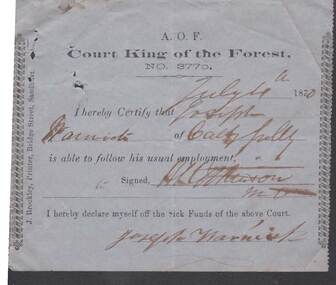 A. O. F.
Court King of the Forest,
NO. 3770.
July 14th 1870
I hereby Certify that Joseph
Warnick of
is able to follow his usual employment,
Signed,
I hereby declare myself off the Sick Funds of the above Court.
Joseph Warnick
J. Brockley, Printer, Bridge Street, Sandhurst.